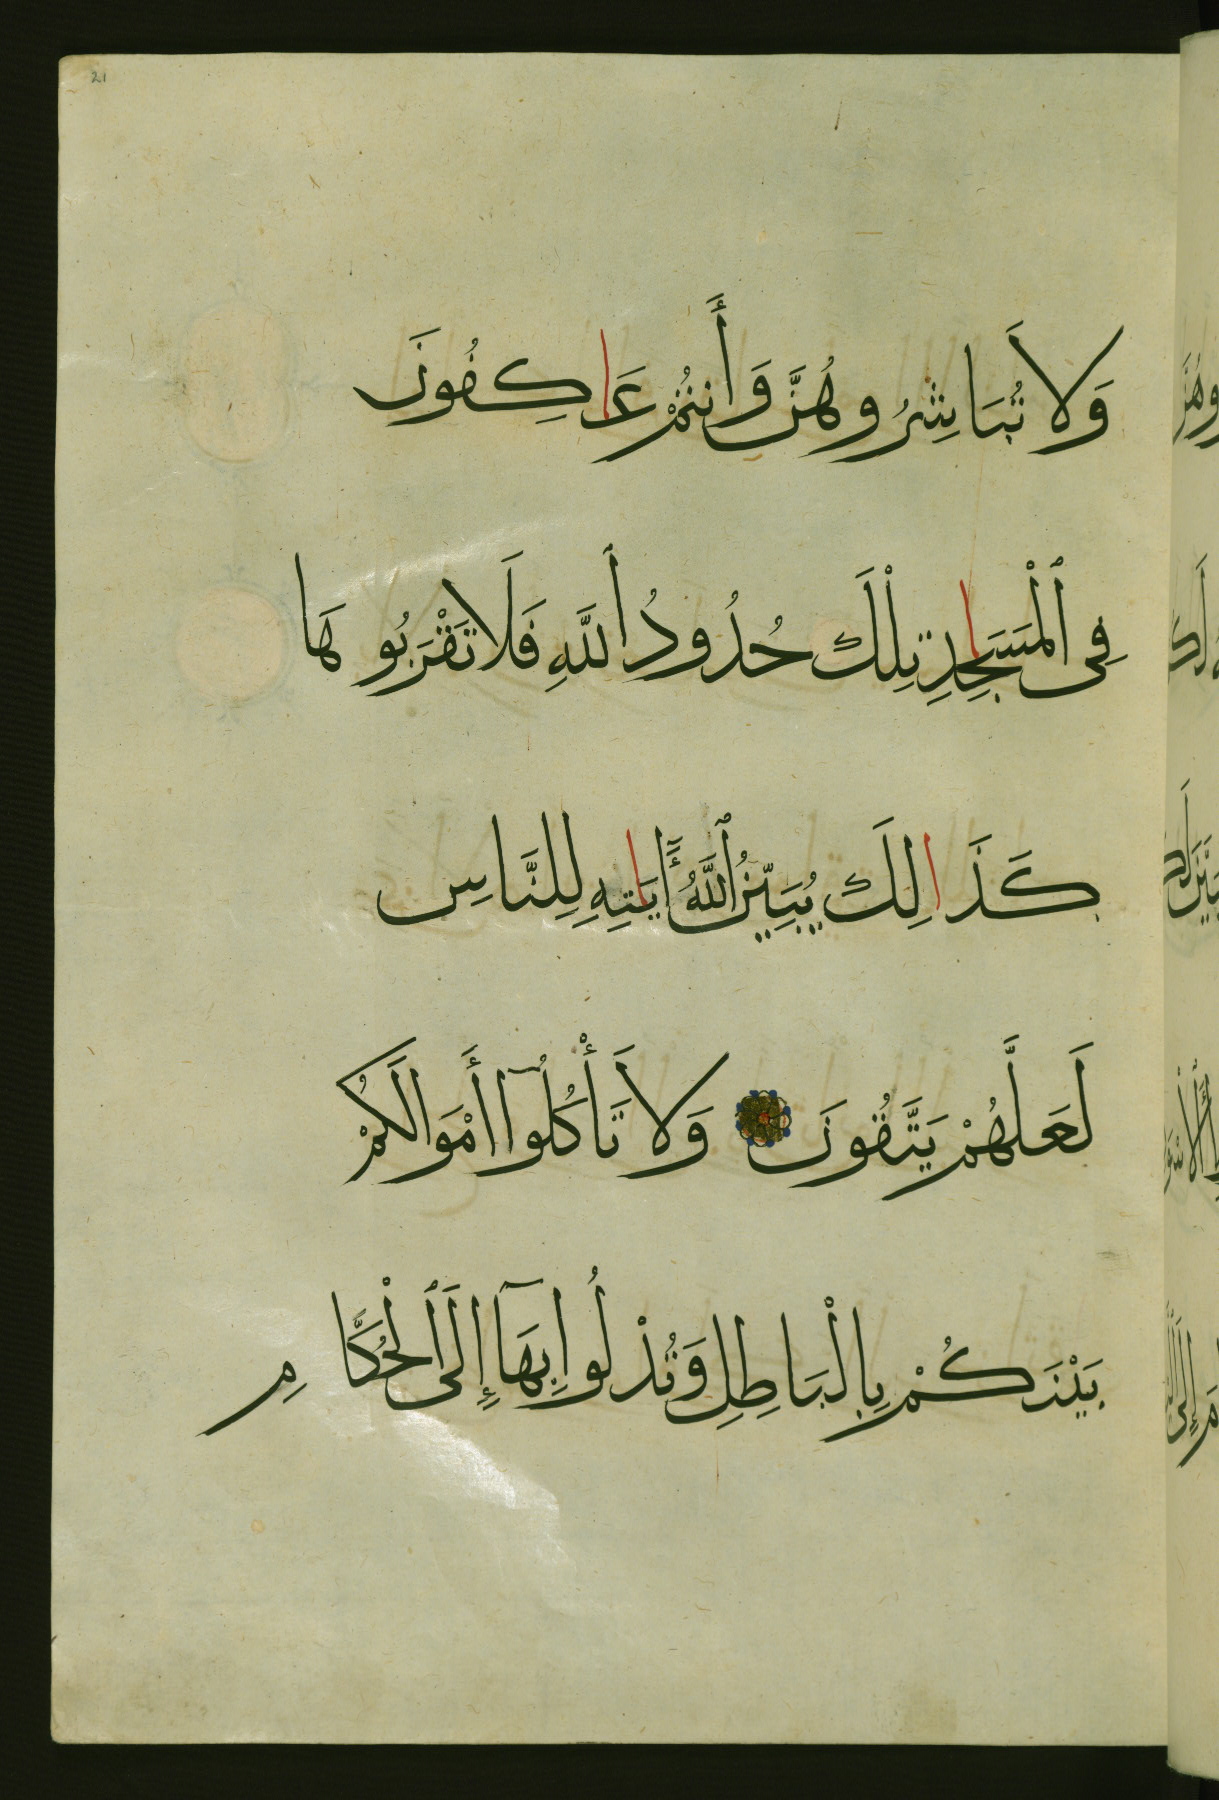 21
وَلَا تُبَاشِرُوهُنَّ وَأَنتُمْ عَاكِفُونَ
فِى ٱلْمَسَاجِدِ تِلْكَ حُدُودُ ٱللَّهِ فَلَا تَقْرَبُوهَا
كَذَالِكَ يُبَيِّنُ ٱللَّهُ أَيَاتِهِ لِلنَّاسِ
لَعَلَّهُمْ يَتَّقُونَ وَلَا تَأْكُلُوٓا أَمْوَالَكُمْ
بَيْنَكُمْ بِالْبَاطِلِ وَتُدْلُوا بِهَآ إِلَى ٱلْحُكَّامِ